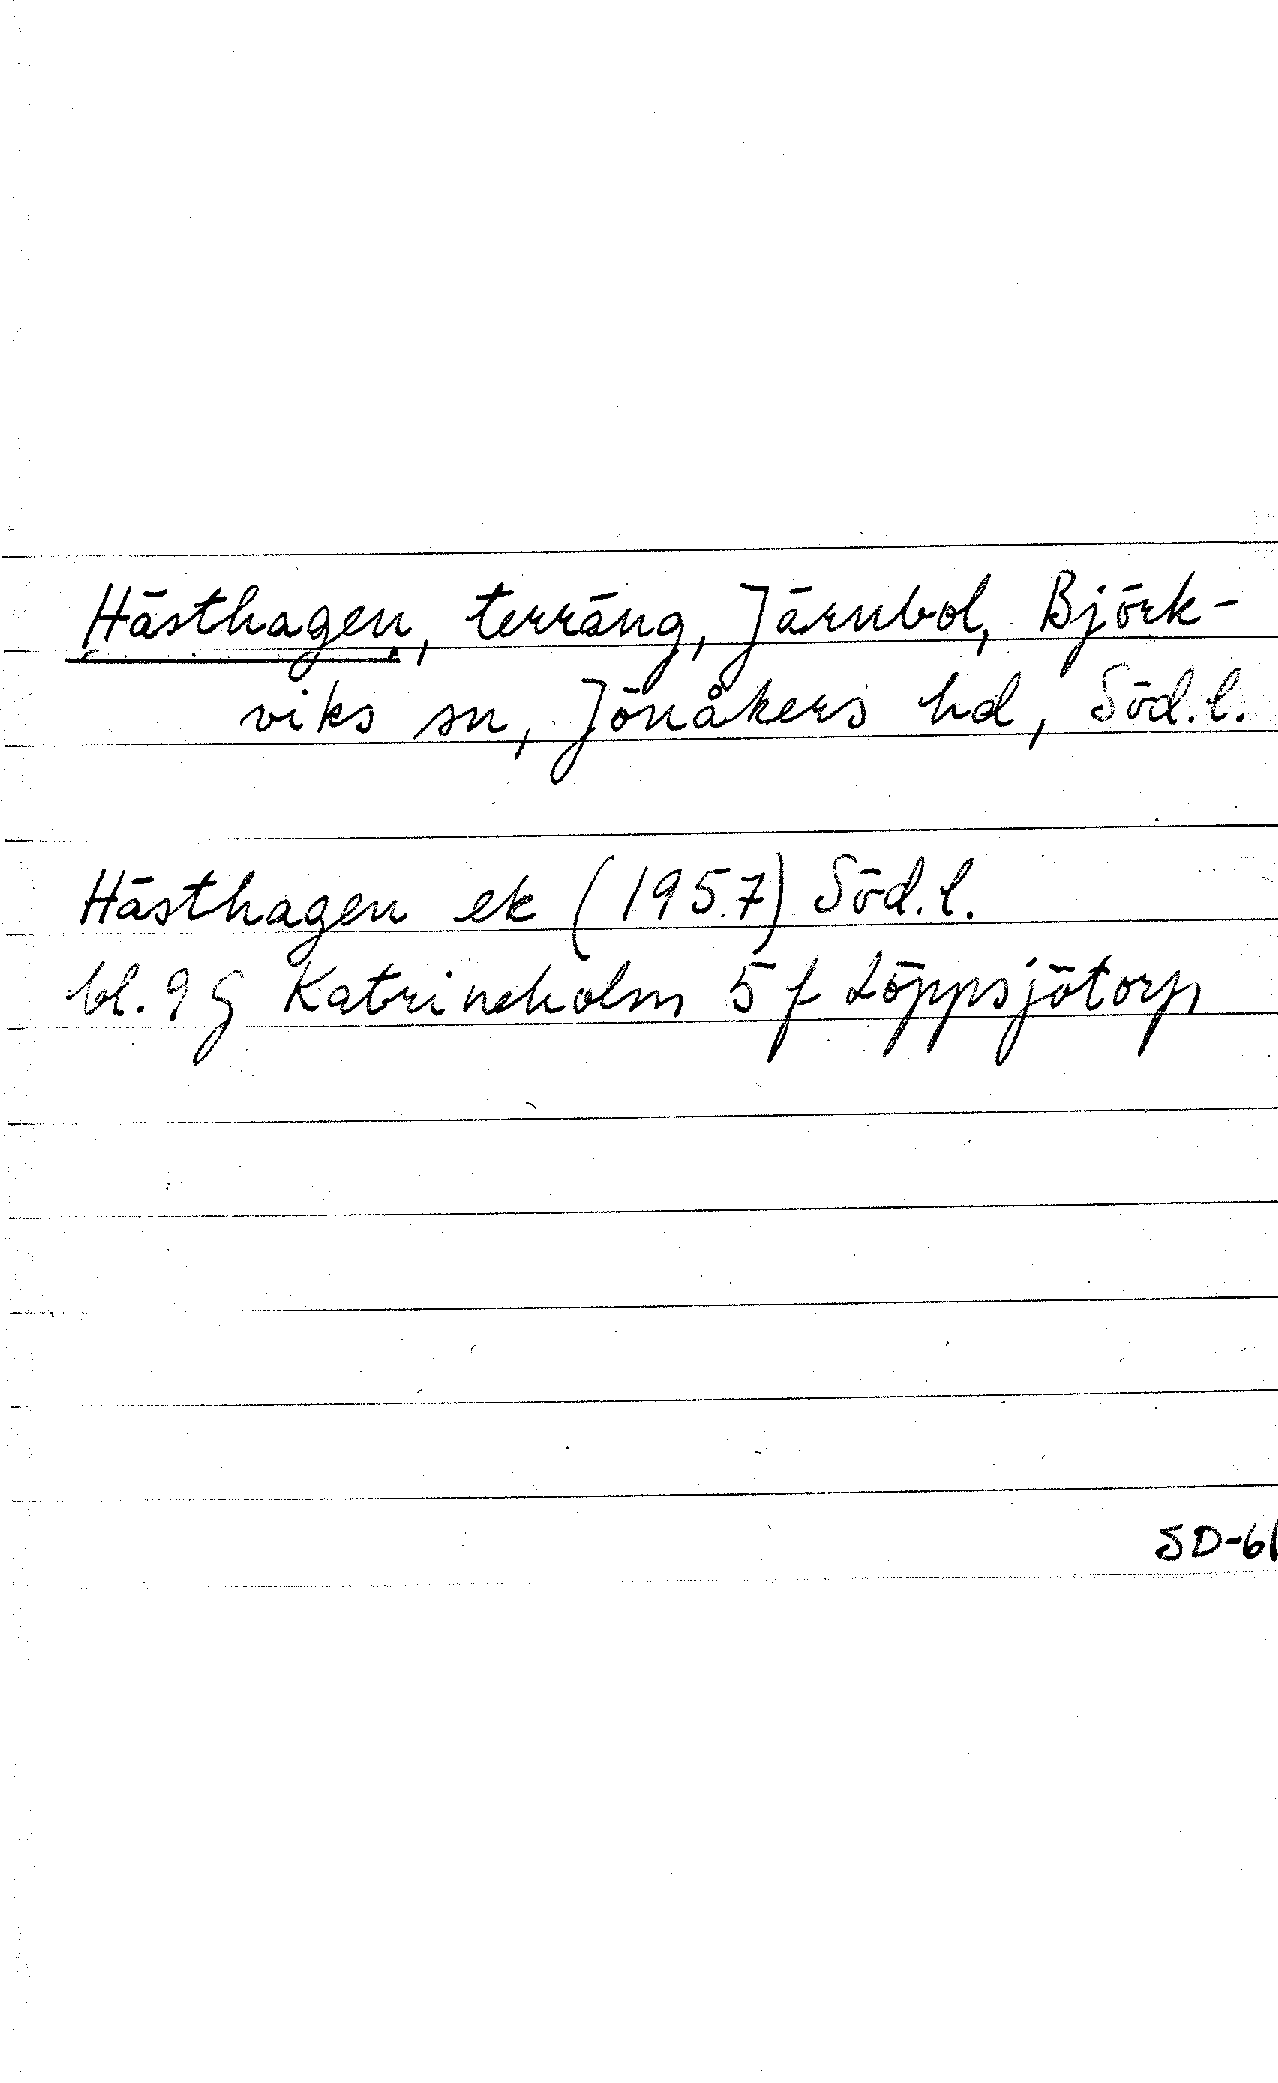 Hästhagen, terräng, Järnbol, Björk-
viks sn, Jönåkers hd, Söd.l.
Hästhagen ek (1957) Söd.l.
bl. 9 G Katrineholm 5 f Löppsjötorp
SD-61